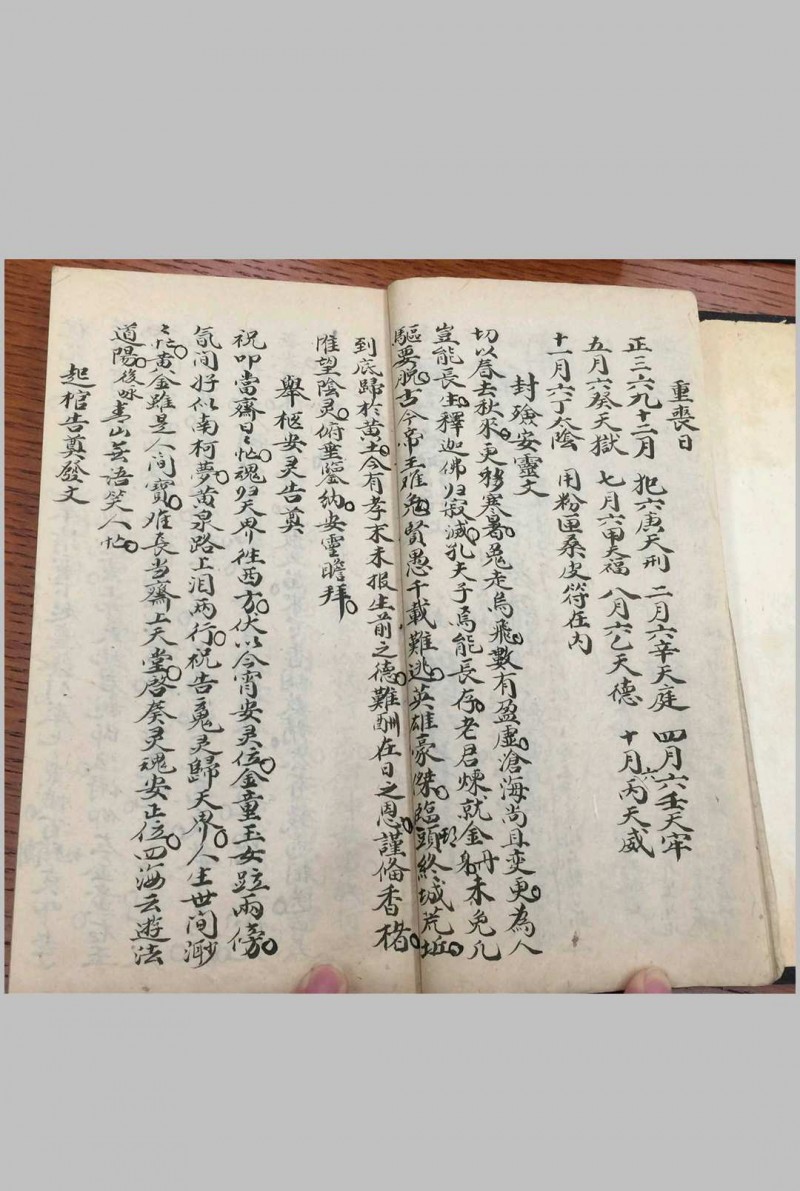 重喪日
正三六九十二月　犯六庚天刑　二月六辛天庭　四月六壬天牢
五月六癸天獄　七月六甲天福　八月六乙天德　十月六丙天威
十一月六丁太陰　用粉匣桑皮符在內
封殮安靈文
切以春去秋來。更移寒暑。兔走烏飛。數有盈虛。滄海尚且变更。為人
豈能長生。釋迦佛归寂滅。孔夫子焉能長存。老君煉就金丹。未免凡
軀要脫。古今帝王难免。賢愚千載難逃。英雄豪傑。臨頭終城荒坵。
到底歸於黃土。今有孝末未报生前之德。難酬在日之恩。謹俻香楮。
惟望陰灵。俯垂鑒納。安靈瞻拜。
舉柩安灵告奠
祝叩當齋日〻忙。魂归天界往西方。伏以今宵安灵位。金童玉女跕兩傍。
氤间好似南柯夢。黃泉路上泪兩行。祝告䰟灵歸天界。人生世间渺
〻忙。黃金雖是人间寶。难長当齋上天堂。啓奏灵魂安正位。四海云遊法
道陽。後咏青山無语笑人忙。
起棺告奠發文